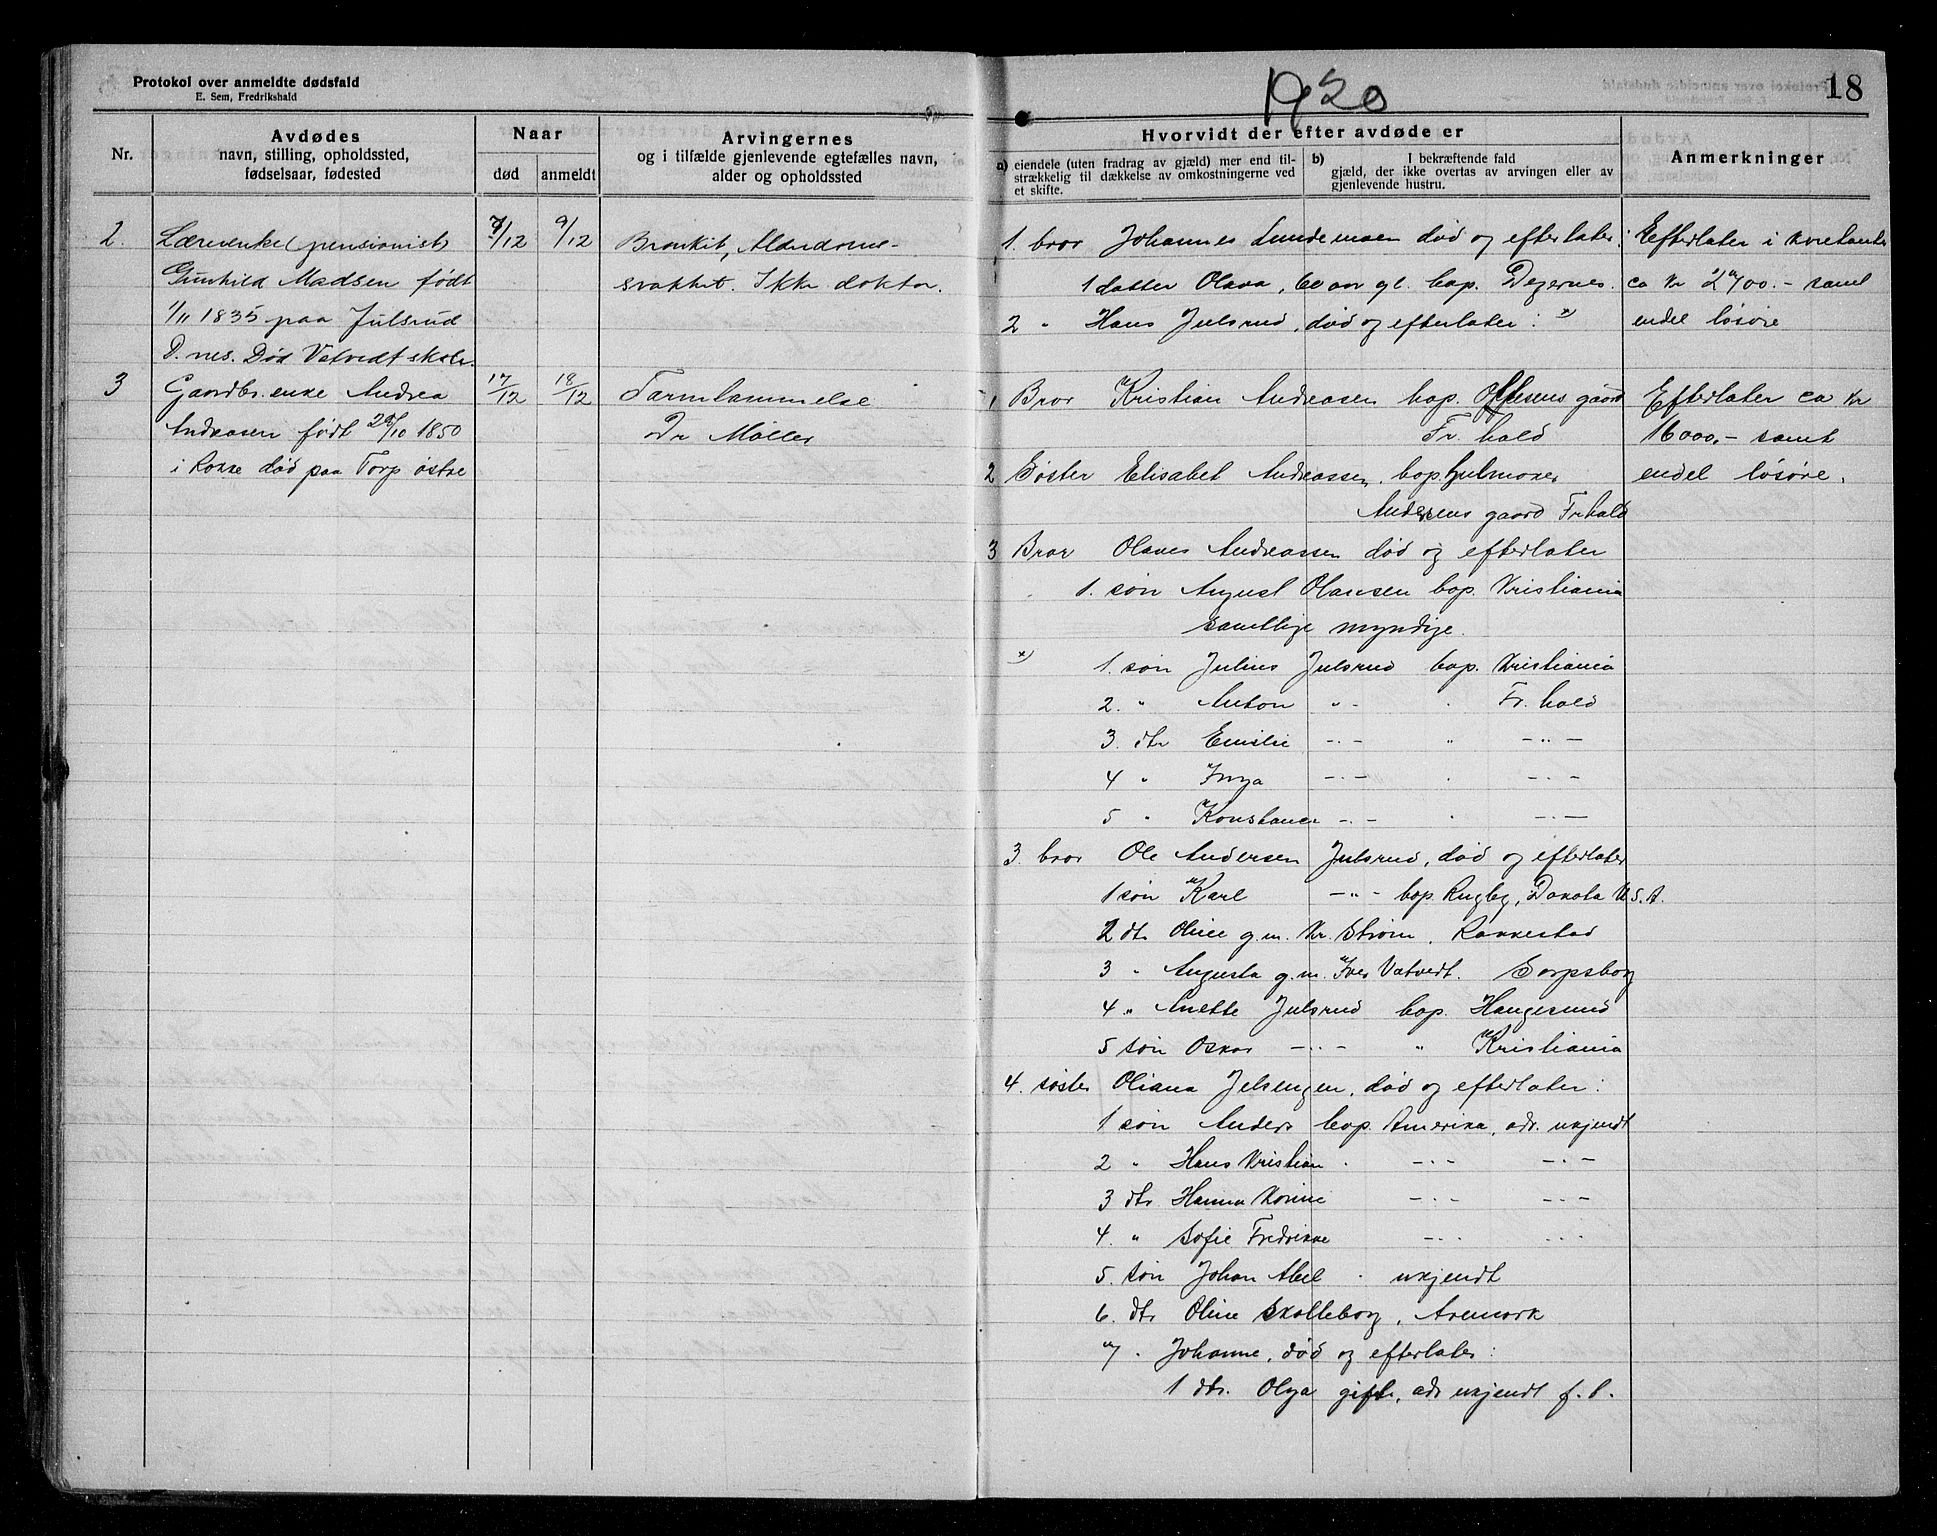 Protokol over anmeldte dødsfald
E. Sem, Fredrikshald
Nr.
Avdødes
navn, stilling, opholdssted,
fødselsaar, fødested
Naar
død
anmeldt
Arvingernes
og i tilfælde gjenlevende egtefælles navn,
alder og opholdssted
2.
Lærerenke (pensionist)
Gunhild Madsen født
1/11 1835 paa Julsrud
Ø.nes. Død Vatvedt skole.
7/12
9/12
Bronkit, Alderdoms-
svakhet. Ikke doktor.
3
Gaardbr.enke Andrea
Andreasen født 28/10 1850
i Rokke død paa Torp østre
17/12
18/12
Tarmlammelse
Dr Møller
1920
18
Hvorvidt der efter avdøde er
a) eiendele (uten fradrag av gjæld) mer end til-
strækkelig til dækkelse av omkostningerne ved
et skifte.
b) I bekræftende fald
gjæld, der ikke overtas av arvingen eller av
gjenlevende hustru.
Anmerkninger
1. bror Johannes Lundemoen død og efterlater:
1 datter Olava, 60 aar gl. bop. Degernes.
2 " Hans Julsrud, død og efterlater: x)
Efterlater i kontanter
ca kr 2700.- samt
endel løsøre
1 Bror Kristian Andreasen bop. Olsens gaard
Fr.hald
2 Søster Elisabet Andreassen. bop.
Andersens gaard Fr hald
3 Bror Olaves Andreassen død og efterlater
1. søn August Olausen bop. Kristiania
samtlige myndige.
Efterlater ca kr
16000,- samt
endel løsøre.
x) 1. søn Julius Julsrud bop. Kristiania
2. " Anton " - " Fr. hald
3. dtr Emilie -"- " -"-
4 " Inga -"- " -"-
5 " Konstance -"- " -"-
3. bror Ole Andersen Julsrud, død og efterlater
1 søn Karl -"- bop. Rugby, Dakota U.S.A.
2 dtr Oline g.m. Kr. Strøm, Rakkestad
3 " Augusta g.m. Iver Vatvedt. Sarpsborg
4 " Anette Julsrud bop. Haugesund
5 søn Oskar -"- " Kristiania
4. søster Oliana Jelsengen, død og efterlater:
1 søn Anders bop. Amerika, adr. ukjendt
2 " Hans Kristian " -"- -"-
3 dtr Hanna Korine -"- -"-
4. " Sofie Fredrikke -"- -"-
5. søn Johan Abel " ukjendt
6. dtr Oline Skolleborg, Aremark
7 " Johanne, død og efterlater:
1 dtr. Olga gift, adr ukjendt f.t.